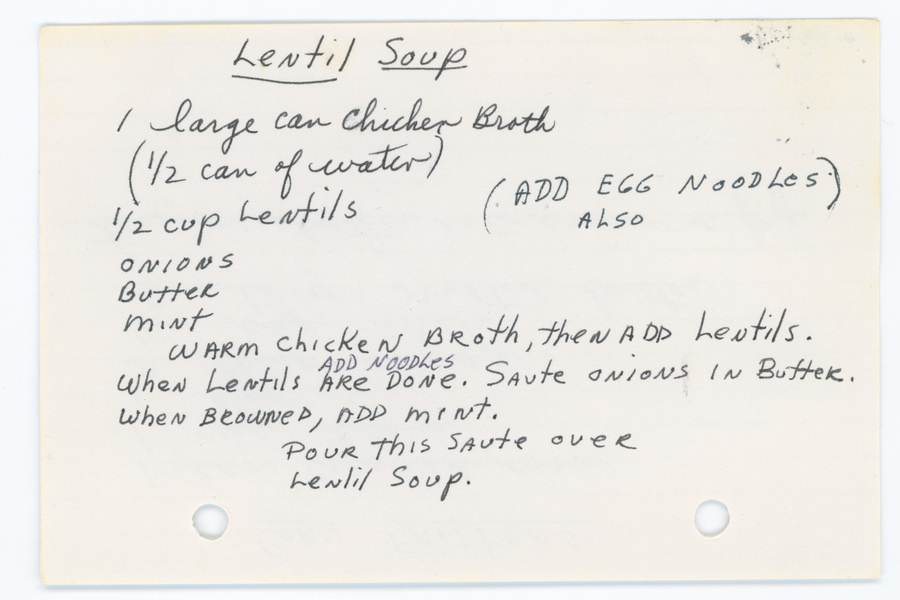 Lentil Soup
1 large can Chicken Broth
(1/2 can of water)
(ADD EGG NOODLES)
ALSO
1/2 cup Lentils
ONIONS
Butter
mint
WARM Chicken Broth, then ADD Lentils.
ADD NOODLES
When Lentils ARE DONE. Saute onions IN Butter.
When BROWNED, ADD mint.
Pour this Saute over
Lentil Soup.